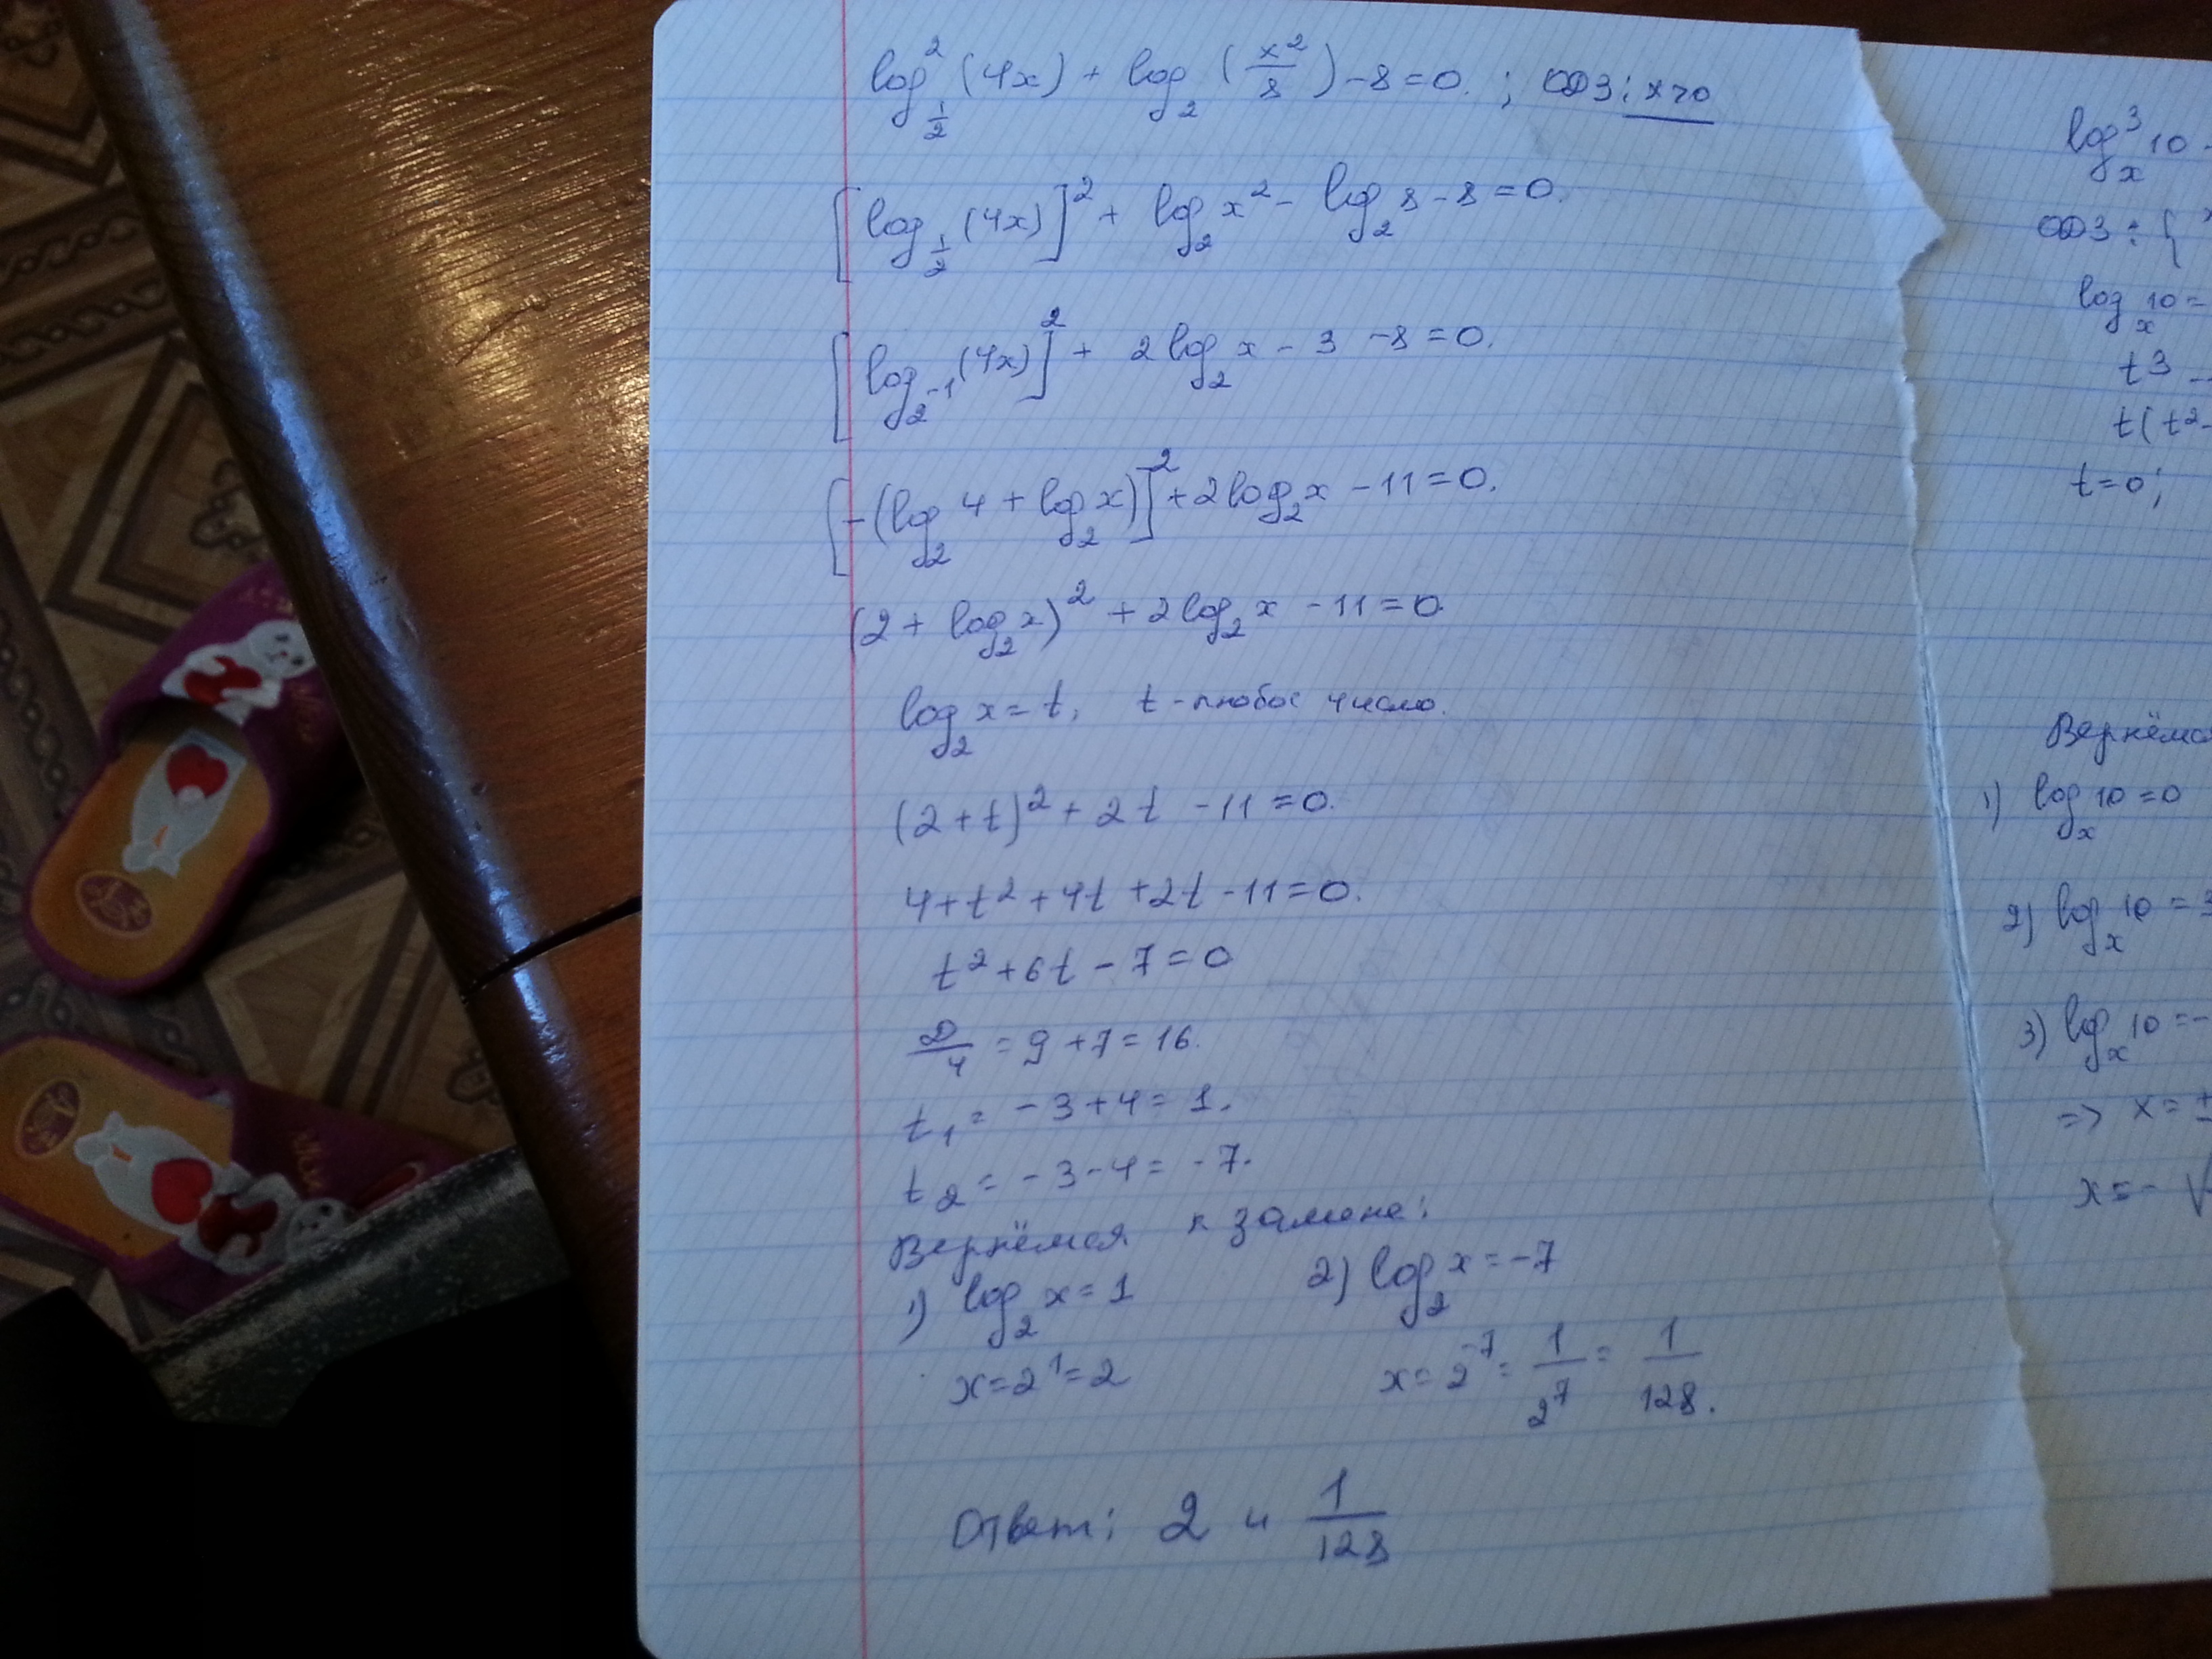 log²_{1/2} (4x) + log₂ (x²/8) - 8 = 0. ; ОДЗ: x>0
[log_{1/2} (4x)]² + log₂ x² - log₂ 8 - 8 = 0.
[log_{2⁻¹} (4x)]² + 2 log₂ x - 3 - 8 = 0.
[-(log₂ 4 + log₂ x)]² + 2 log₂ x - 11 = 0.
(2 + log₂ x)² + 2 log₂ x - 11 = 0.
log₂ x = t, t - любое число.
(2 + t)² + 2t - 11 = 0.
4 + t² + 4t + 2t - 11 = 0.
t² + 6t - 7 = 0
D/4 = 9 + 7 = 16.
t₁ = -3 + 4 = 1.
t₂ = -3 - 4 = -7.
Вернёмся к замене:
1) log₂ x = 1 2) log₂ x = -7
x = 2¹ = 2 x = 2⁻⁷ = 1/2⁷ = 1/128.
Ответ: 2 и 1/128
log³ₓ 10 -
ОДЗ: {
logₓ 10 =
t³ -
t(t² -
t = 0;
1) logₓ 10 = 0
2) logₓ 10 = 3
3) logₓ 10 = -
=> x = ±
x = - √